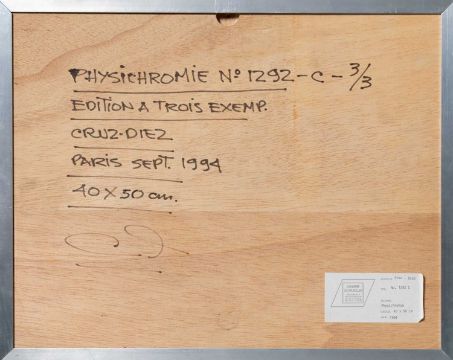 PHYSICHROMIE Nº 1292 - C - 3/3
EDITION A TROIS EXEMP.
CRUZ-DIEZ
PARIS SEPT. 1994
40 X 50 cm.